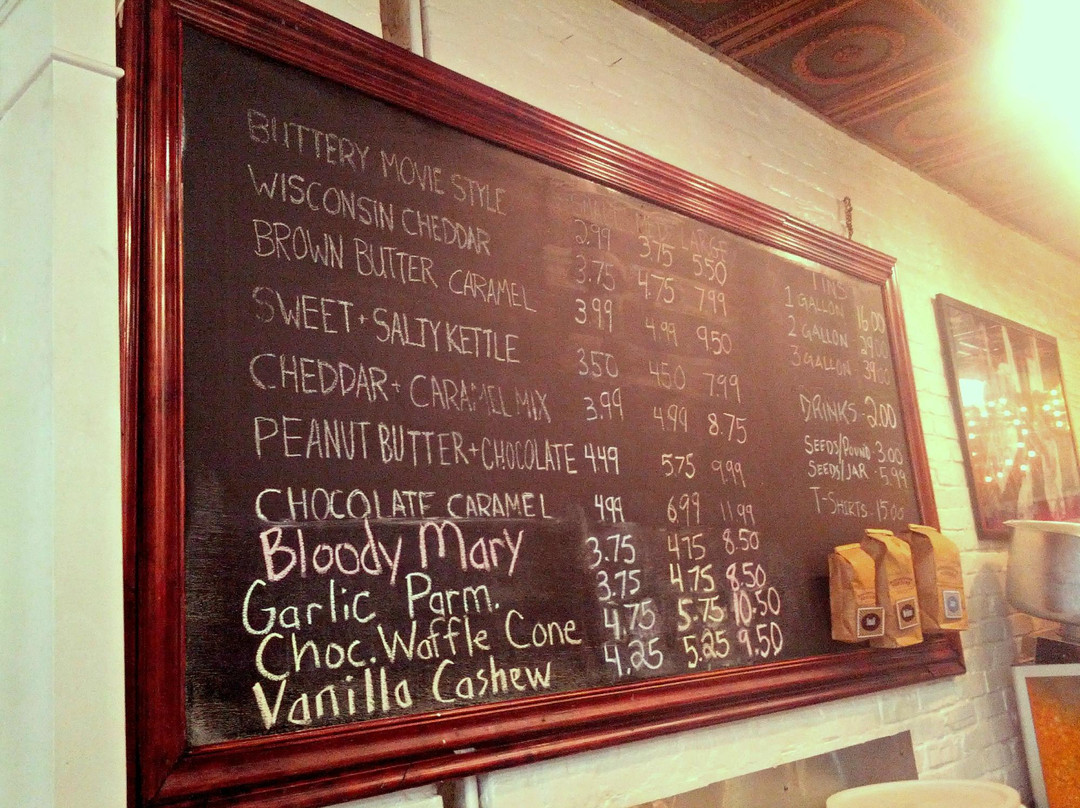 SMALL MED LARGE
BUTTERY MOVIE STYLE 2.99 3.75 5.50
WISCONSIN CHEDDAR 3.75 4.75 7.99
BROWN BUTTER CARAMEL 3.99 4.99 9.50
SWEET + SALTY KETTLE 3.50 4.50 7.99
CHEDDAR + CARAMEL MIX 3.99 4.99 8.75
PEANUT BUTTER + CHOCOLATE 4.49 5.75 9.99
CHOCOLATE CARAMEL 4.99 6.99 11.99
Bloody Mary 3.75 4.75 8.50
Garlic Parm. 3.75 4.75 8.50
Choc. Waffle Cone 4.75 5.75 10.50
Vanilla Cashew 4.25 5.25 9.50
TINS
1 GALLON 16.00
2 GALLON 29.00
3 GALLON 39.00
DRINKS - 2.00
SEEDS/POUND - 3.00
SEEDS/JAR - 5.99
T-SHIRTS - 15.00